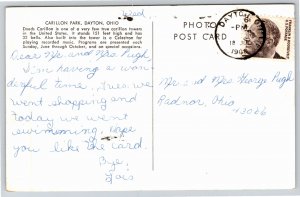 CARILLON PARK, DAYTON, OHIO
Deeds Carillon is one of very few true carillon towers
in the United States. It stands 151 feet high and has
32 bells. Also built into the tower is a Celestron for
playing recorded music. Programs are presented each
Sunday, June through October, and on special occasions.
Wed
Dear Mr. and Mrs. Pugh,
I'm having a won-
derful time. Tues. we
went shopping and
today we went
swimming. Hope
you like the card.
Bye,
Lois
PHOTO
POST CARD
DAYTON OHIO
PM
18
Mr. and Mrs. George Pugh
Radnor, Ohio
43066